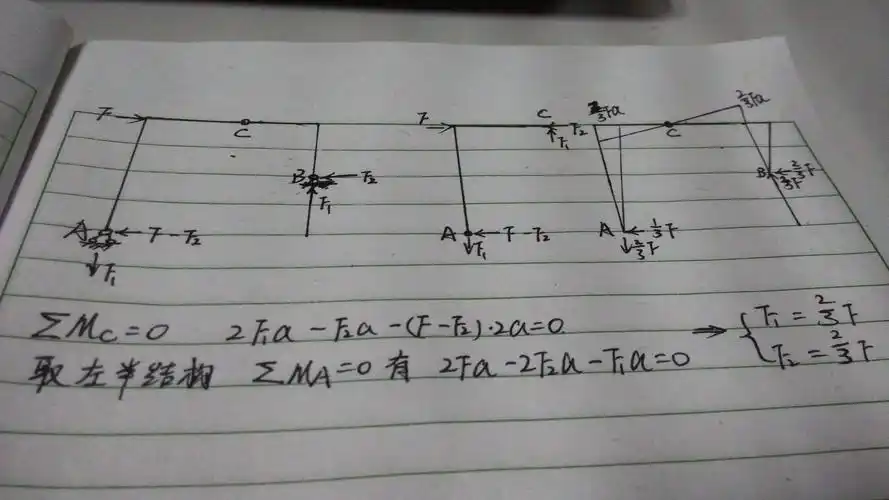 F C B F₂ F₁ A F-F₂ F₁
F C F₁ F₂ A F-F₂ F₁
2/3Fa C 2/3Fa B 2/3F 2/3F A 1/3F 2/3F
ΣMc=0 2F₁a-F₂a-(F-F₂)·2a=0 → { F₁=2/3F
取左半结构 ΣMA=0有 2Fa-2F₂a-F₁a=0 F₂=2/3F